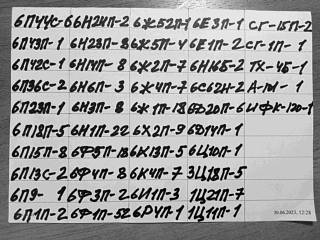 6П44С- 6Н24П-2 6Ж52П-1 6Е3П-1 СГ-15П-2
6П43П-1 6Н23П-8 6Ж5П-4 6Е1П-2 СГ-1П-1
6П42С-1 6Н14П-8 6Ж2П-7 6Н16Б-2 ТХ-4Б-1
6П36С-2 6Н6П-3 6Ж4П-7 6С62Н-2
6П23П-1 6Н3П-8 6Ж1П-18 6Ф20П-6
6П18П-5 6Н1П-22 6Х2П-9 -1
6П15П-8 6Ф5П-18 6К13П-5 6Ц10П-1
6П13С-2 6Ф4П-8 6К4П-7 3Ц18П-5
6П9-1 6Ф3П-2 6И1П-3 1Ц21П-7
6П1П-2 6Ф1П-52 6Р4П-1 1Ц11П-1
30.06.2023, 12:28